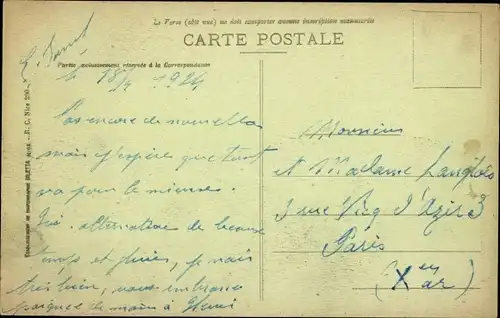 Le Verso (côté vue) ne doit comporter aucune inscription manuscrite
CARTE POSTALE
Partie exclusivement réservée à la Correspondance
le 18/4 1924
Pas encore de nouvelles
mais j'espère que tout
va pour le mieux.
Ici alternative de beau
temps et pluies, je vais
très bien, nous embrasse
poignée de main à Henri
Monsieur
et Madame Langlois
3 rue Vicq d'Azir 3
Paris
(Xem ar)